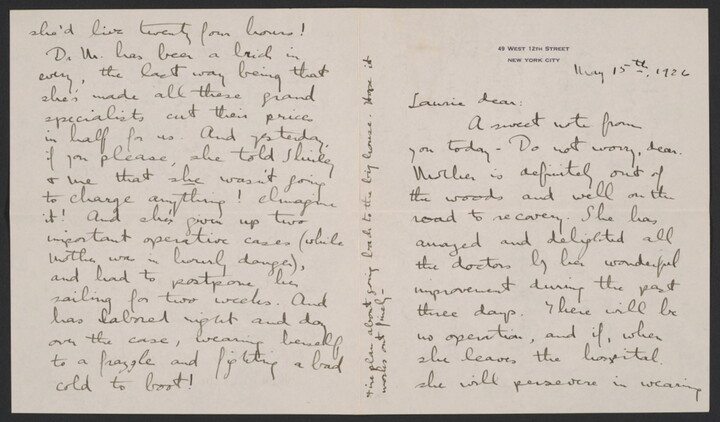 49 WEST 12TH STREET
NEW YORK CITY
May 15th, 1926
Laurie dear:
A sweet note from
you today - Do not worry, dear.
Mother is definitely out of
the woods and well on the
road to recovery. She has
amazed and delighted all
the doctors by her wonderful
improvement during the past
three days. There will be
no operation, and if, when
she leaves the hospital
she will persevere in wearing
she'd live twenty four hours!
Dr M. has been a brick in
every, the last way being that
she's made all these grand
specialists cut their price
in half for us. And yesterday,
if you please, she told Shirley
& me that she wasn't going
to charge anything! Imagine
it! And she's given up two
important operative cases (while
Mother was in hourly danger),
and had to postpone her
sailing for two weeks. And
has labored night and day
over the case, wearing herself
to a frazzle and fighting a bad
cold to boot!
plan about going back to the big house. Hope it
works out finely -